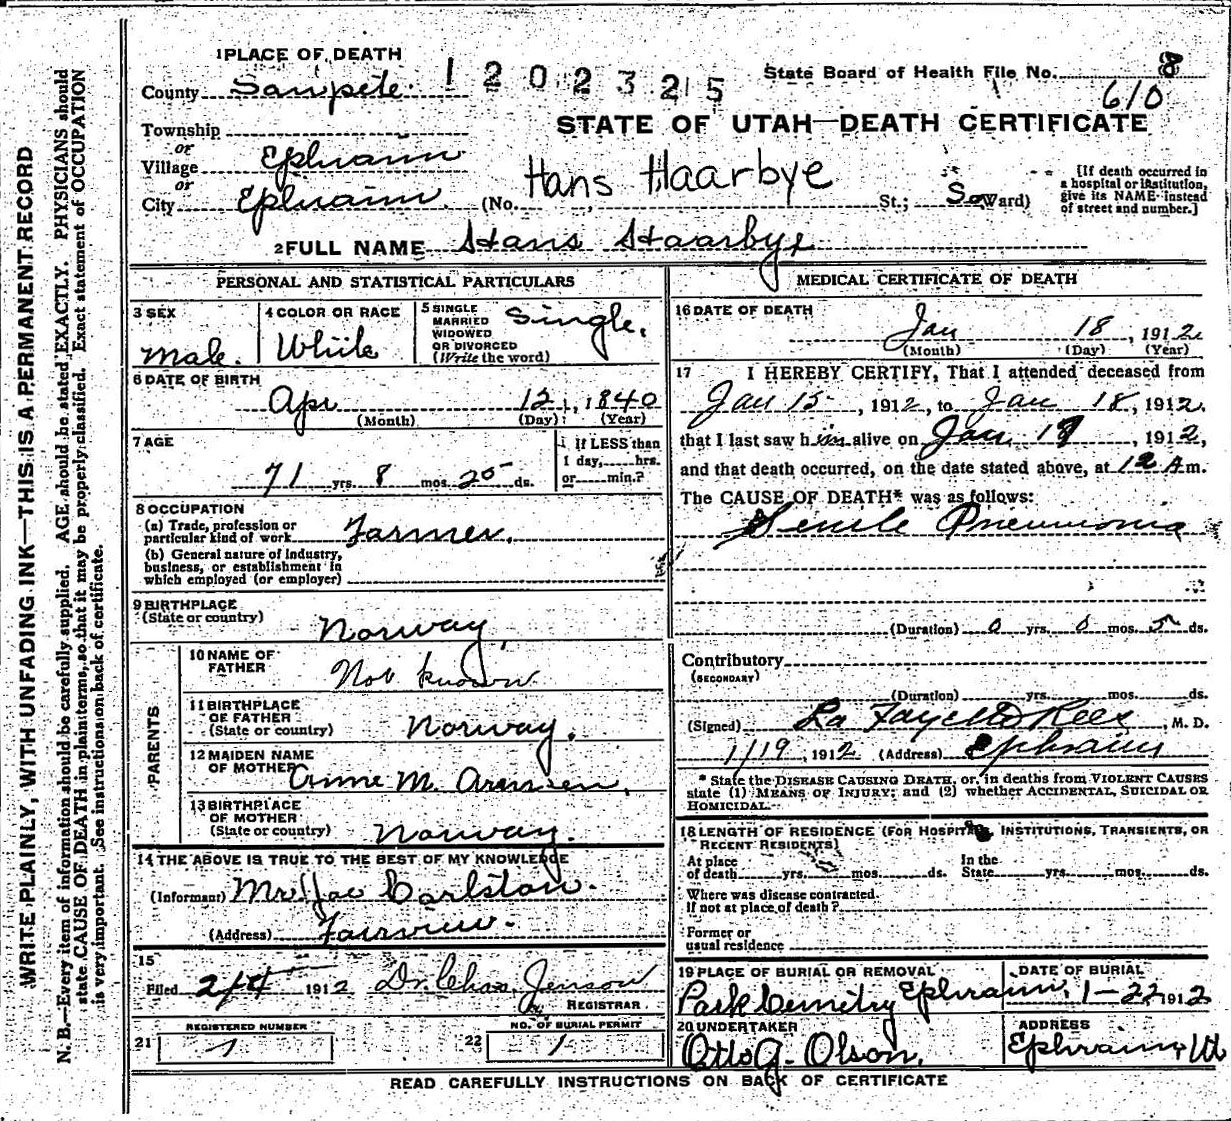 WRITE PLAINLY, WITH UNFADING INK—THIS IS A PERMANENT RECORD
N. B.—Every item of information should be carefully supplied. AGE should be stated EXACTLY. PHYSICIANS should
state CAUSE OF DEATH in plain terms, so that it may be properly classified. Exact statement of OCCUPATION
is very important. See instructions on back of certificate.
1 PLACE OF DEATH
County Sanpete
1202325
State Board of Health File No. 8
610
STATE OF UTAH—DEATH CERTIFICATE
Township
or
Village Ephraim
or
City Ephraim (No. , St.; So Ward)
Hans Haarbye
[If death occurred in
a hospital or institution,
give its NAME instead
of street and number.]
2 FULL NAME Hans Haarbye
PERSONAL AND STATISTICAL PARTICULARS
3 SEX
Male.
4 COLOR OR RACE
White
5 SINGLE
MARRIED
WIDOWED
OR DIVORCED
(Write the word)
Single.
6 DATE OF BIRTH
Apr 12, 1840
(Month) (Day) (Year)
7 AGE
71 yrs. 8 mos. 25 ds.
If LESS than
1 day, hrs.
or min.?
8 OCCUPATION
(a) Trade, profession or
particular kind of work Farmer.
(b) General nature of Industry,
business, or establishment in
which employed (or employer)
9 BIRTHPLACE
(State or country)
Norway
PARENTS
10 NAME OF
FATHER
Not known
11 BIRTHPLACE
OF FATHER
(State or country) Norway.
12 MAIDEN NAME
OF MOTHER Anne M.
13 BIRTHPLACE
OF MOTHER
(State or country) Norway.
14 THE ABOVE IS TRUE TO THE BEST OF MY KNOWLEDGE
(Informant) Mr Jac Carlston.
(Address) Fairview.
15
Filed 2/4 1912 Dr. Chas. Jenson
REGISTRAR.
REGISTERED NUMBER
21 1
NO. OF BURIAL PERMIT
22 1
MEDICAL CERTIFICATE OF DEATH
16 DATE OF DEATH
Jan 18, 1912
(Month) (Day) (Year)
17 I HEREBY CERTIFY, That I attended deceased from
Jan 15, 1912, to Jan 18, 1912.
that I last saw him alive on Jan. 17, 1912,
and that death occurred, on the date stated above, at 12 A m.
The CAUSE OF DEATH* was as follows:
Senile Pneumonia
(Duration) 0 yrs. 0 mos. 5 ds.
Contributory
(SECONDARY)
(Duration) yrs. mos. ds.
(Signed) La Fayette Rees, M. D.
1/19, 1912 (Address) Ephraim
* State the DISEASE CAUSING DEATH, or, in deaths from VIOLENT CAUSES
state (1) MEANS OF INJURY; and (2) whether ACCIDENTAL, SUICIDAL OR
HOMICIDAL.
18 LENGTH OF RESIDENCE (FOR HOSPITALS, INSTITUTIONS, TRANSIENTS, OR
RECENT RESIDENTS)
At place
of death yrs. mos. ds.
In the
State yrs. mos. ds.
Where was disease contracted
if not at place of death?
Former or
usual residence
19 PLACE OF BURIAL OR REMOVAL
Park Cemetry Ephraim
DATE OF BURIAL
1-22, 1912
20 UNDERTAKER
Otto G. Olson.
ADDRESS
Ephraim, Ut
READ CAREFULLY INSTRUCTIONS ON BACK OF CERTIFICATE